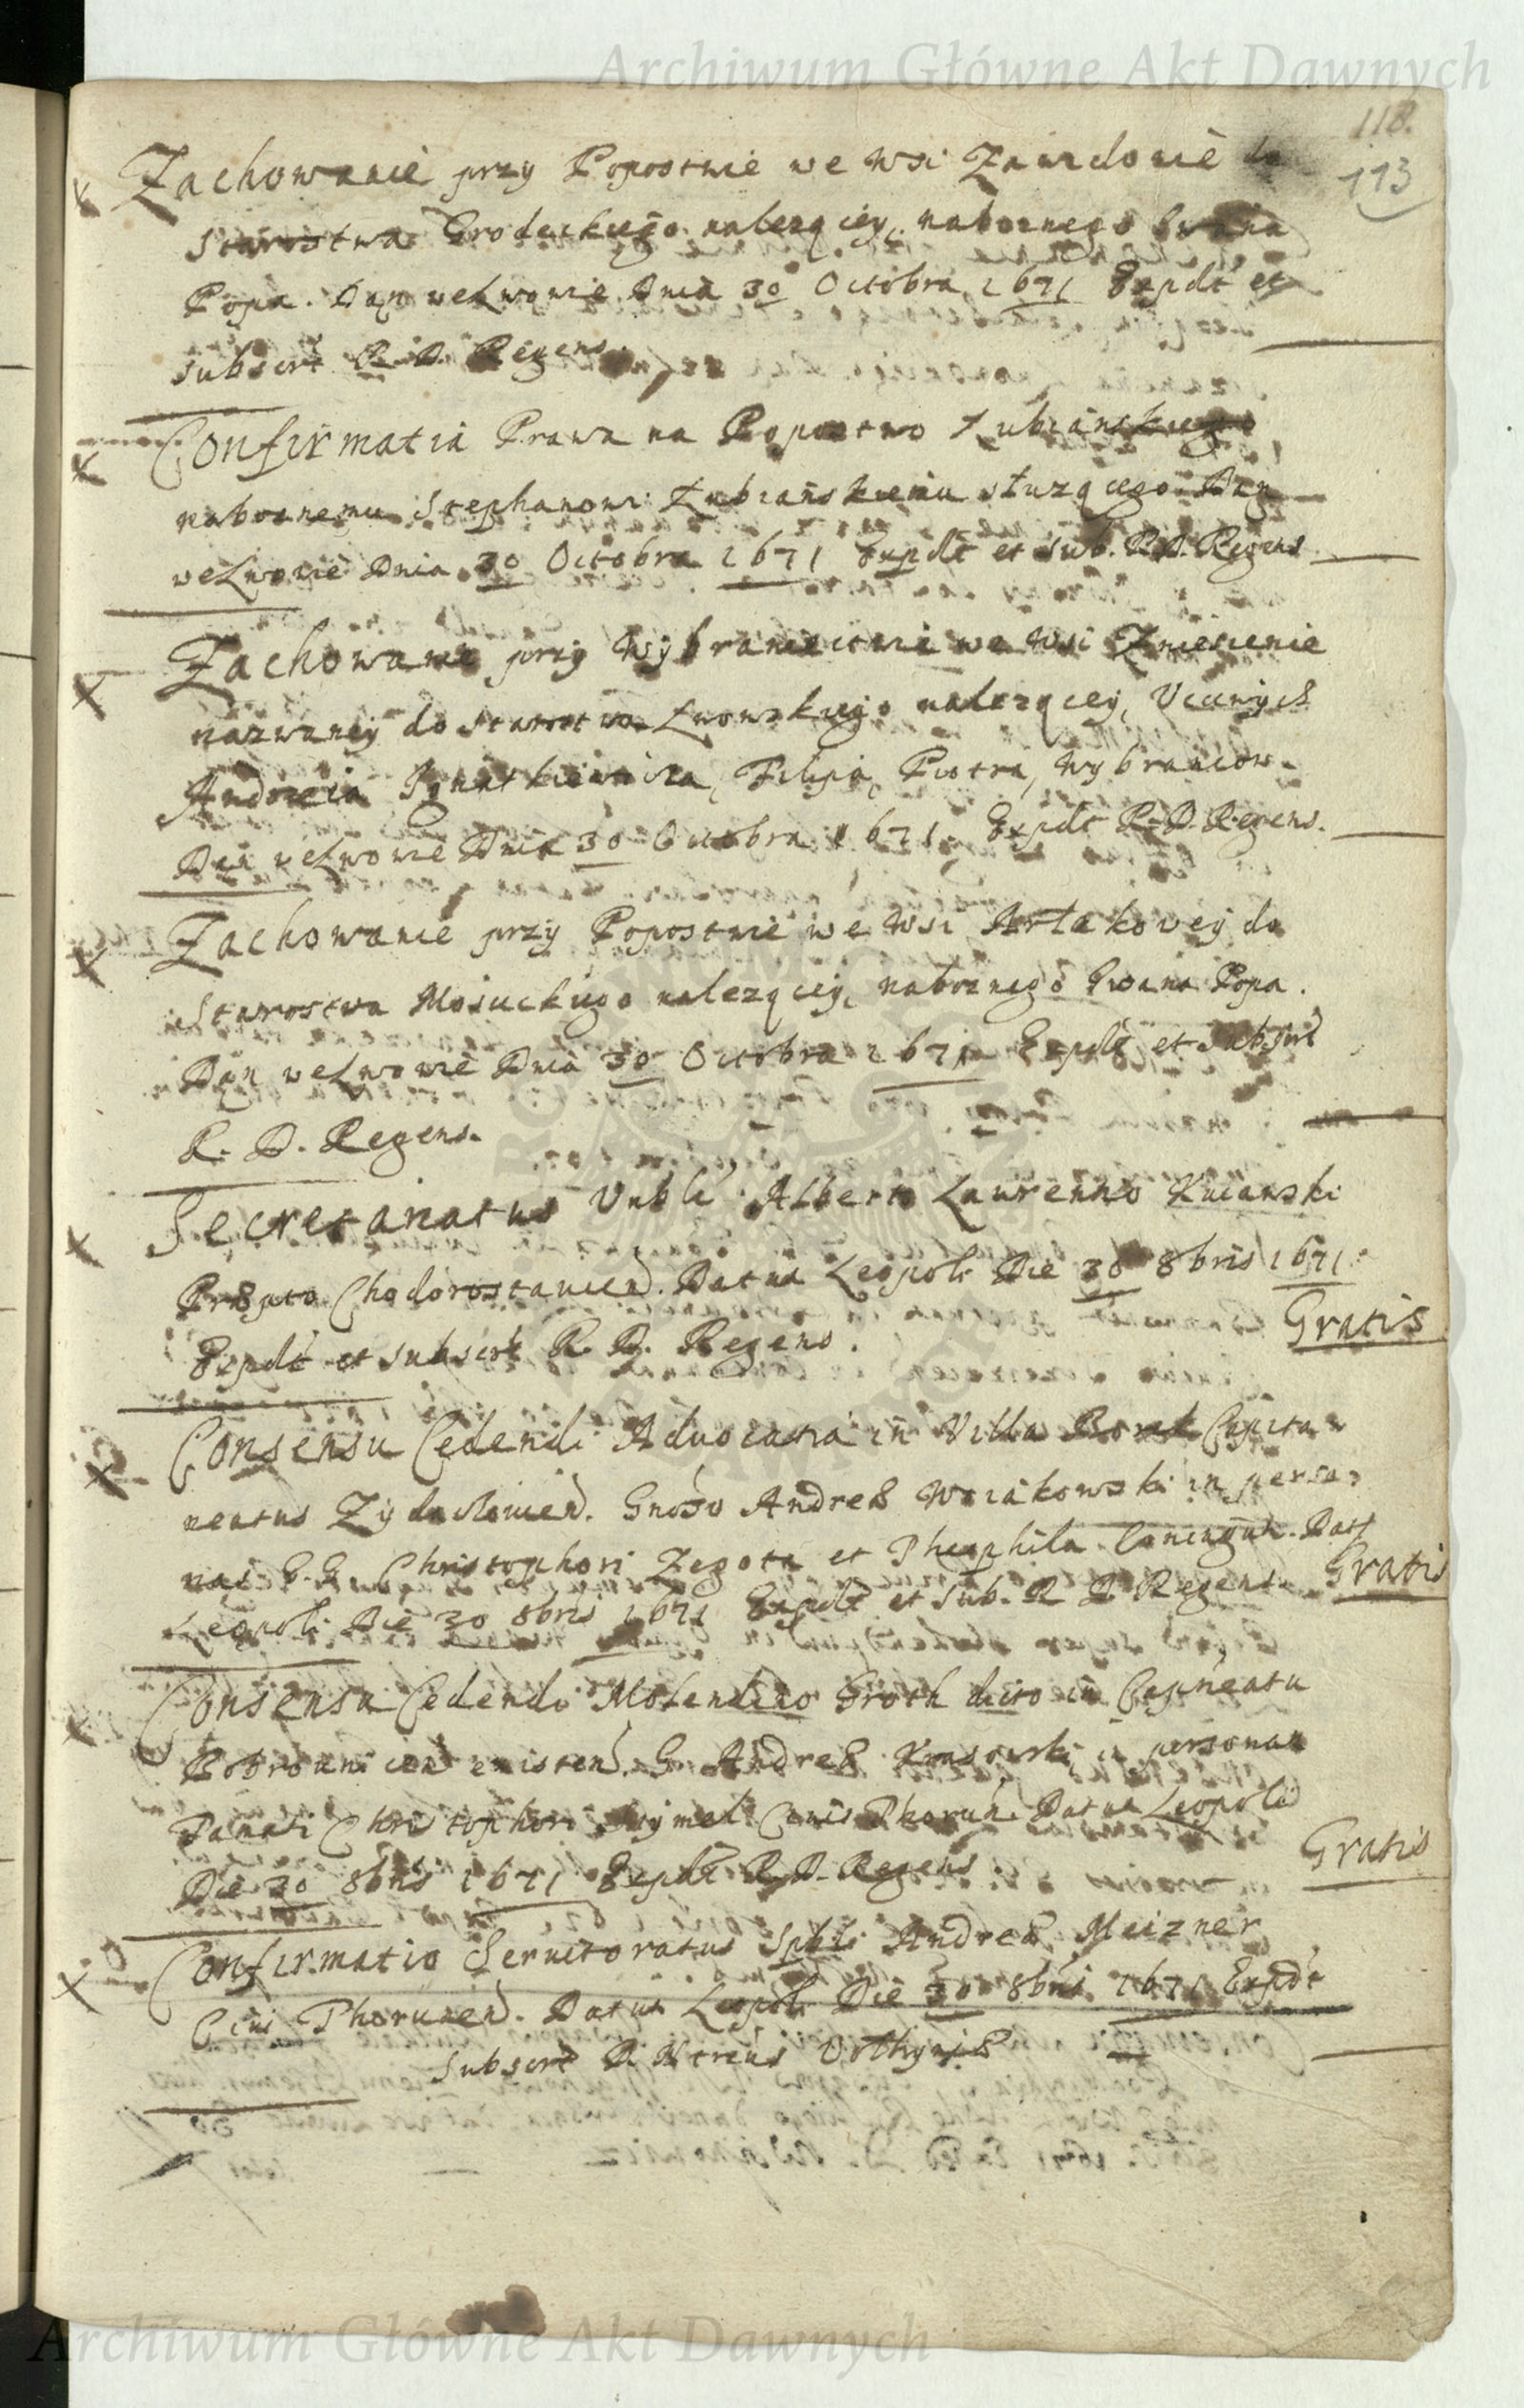 Archiwum Główne Akt Dawnych
118.
113
Zachowanie przy Popostwie we wsi Zawidowie do
Starostwa Grodeckiego nalezącey, naboznego Iwana
Popa. Dan weLwowie Dnia 30 Octobra 1671 Expdt et
subscrt R. D. Regens.
Confirmatia Prawa na Popostwo Łubianskiego
naboznemu Stephanowi Łubianskiemu słuzącego Dan
weLwowie Dnia 30 Octobra 1671 Expdt et sub. R.D. Regens
Zachowanie przy Wybraniectwie we wsi Zniesienie
nazwaney do Starostwa Lwowskiego nalezącey, Uczciwych
Andrzeia Ignatkiewicza, Filipa, Piotra, Wybrancow.
Dan weLwowie Dnia 30 Octobra 1671. Expdt R. D. Regens.
Zachowanie przy Popostwie we Wsi Artakovey do
Starostwa Mosuckiego nalezącey, naboznego Iwana Popa.
Dan weLwowie Dnia 30 Octobra 1671 Expdt et subscrt
R. D. Regens.
Secretariatus Vnbli Alberto Laurentio Kucarski
Chodorostavien. Datus Leopoli Die 30 8bris 1671.
Gratis
Expdt et subscrt R. D. Regens.
Consensu Cedendi Advocatia in Villa Borek Capita-
neatus Zydaczovien. Gnoso Andreae Woiakowski in perso-
nas G.G. Christophori Zegota et Theophila Coniugum. Dat
Gratis
Leopoli Die 30 8bris 1671 Expdt et sub. R D Regens
Consensu Cedendi Molendino Groth dicto in Capneatu
Bobrownicen existen. G. Andreae Krasowski in personam
Famati Christophori Civis Thorun. Datus Leopoli
Gratis
Die 30 8bris 1671 Expdt R. D. Regens
Confirmatio Servitoratus Spbli Andreae Meizner
Civi Thorunen. Datus Leopoli Die 30 8bris 1671 Expdt
Subscrt D.
Archiwum Główne Akt Dawnych